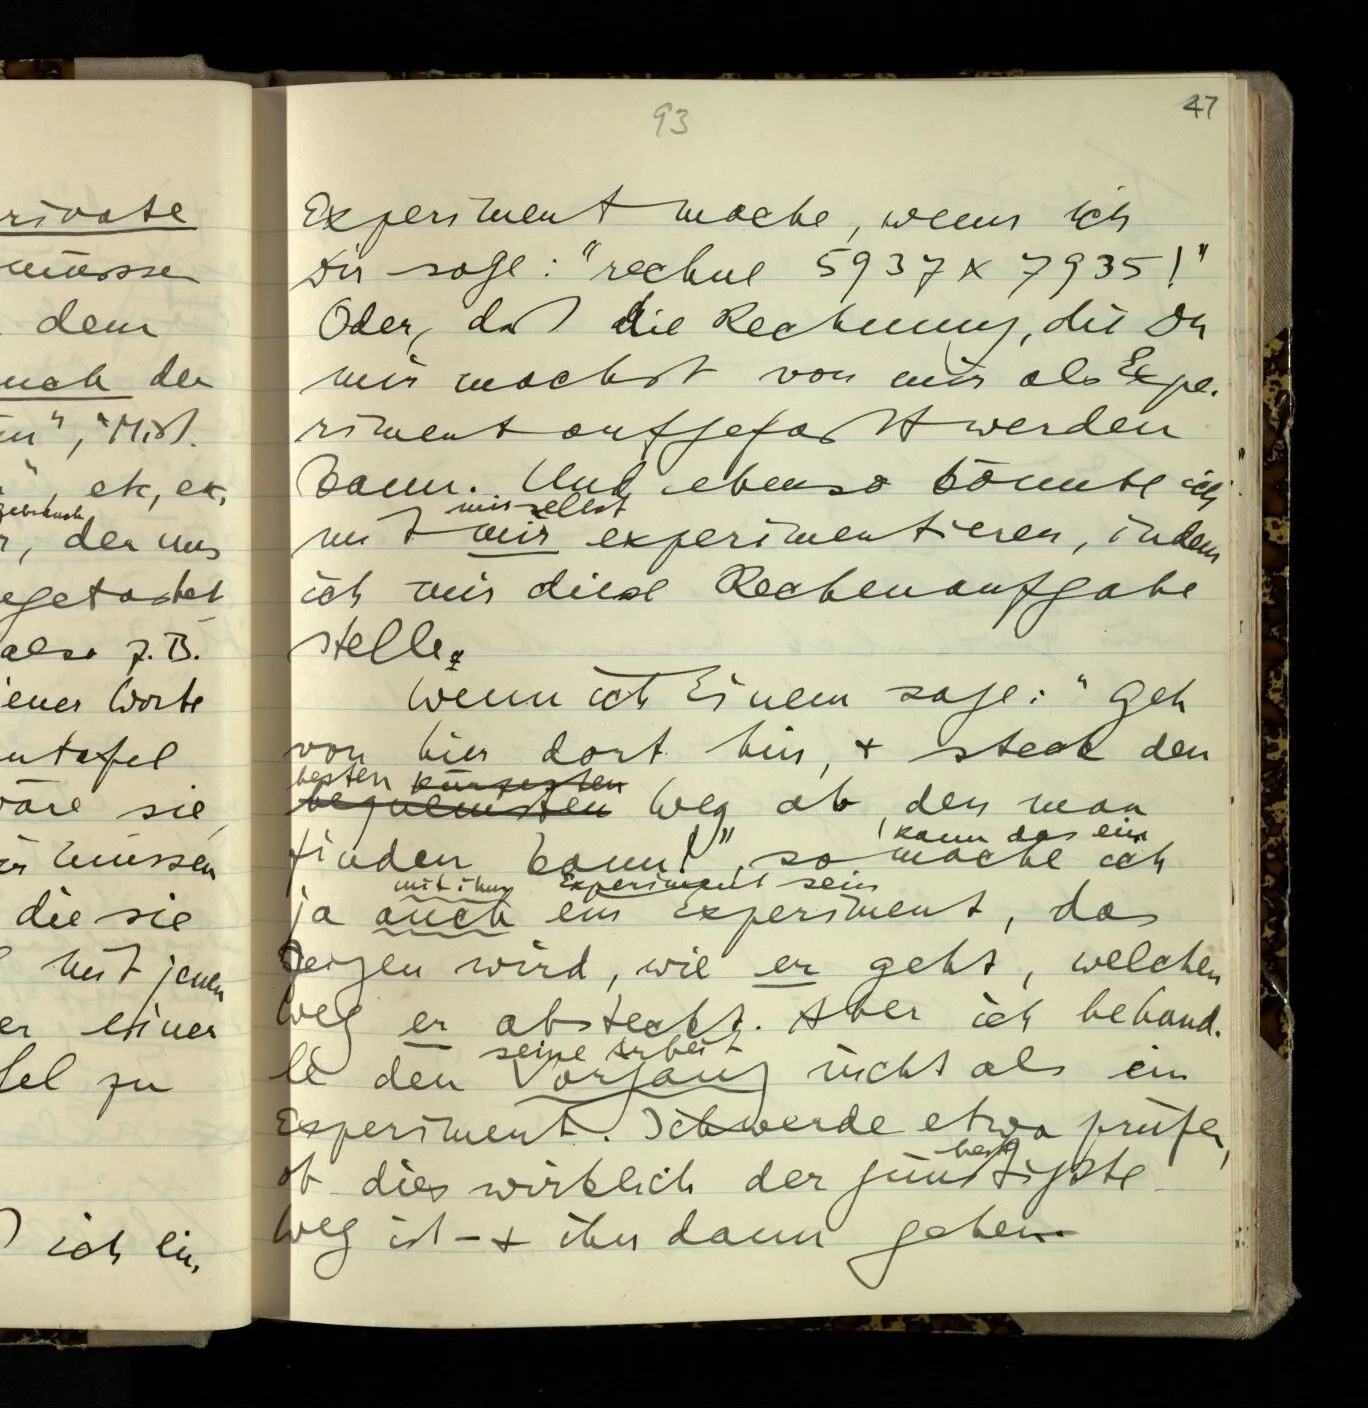 93
47
rivate
müssen
dem
nach der
", "Mist.
", etc, etc,
gebrauch
r, der uns
also z.B.
jener Worte
wäre sie,
müssen
die sie
mit jenen
er einer
fel zu
ich ein,
Experiment mache, wenn ich
Dir sage: "rechne 5937 x 7935!"
Oder, daß die Rechnung, die Du
mir machst von mir als Expe-
riment aufgefaßt werden
kann. Und ebenso könnte ich
mir selbst
mit mir experimentieren, indem
ich mir diese Rechenaufgabe
stelle.
Wenn ich Einem sage: "Geh
von hier dort hin, + steck den
besten kürzesten
bequemsten Weg ab, den man
kann das ein
finden kann!", so mache ich
mit ihm Experiment sein
ja auch ein Experiment, das
zeigen wird, wie er geht, welchen
Weg er absteckt. Aber ich behand-
seine Arbeit
le den Vorgang nicht als ein
Experiment. Ich werde etwa prüfen,
beste
ob dies wirklich der günstigste
Weg ist – + ihn dann gehen